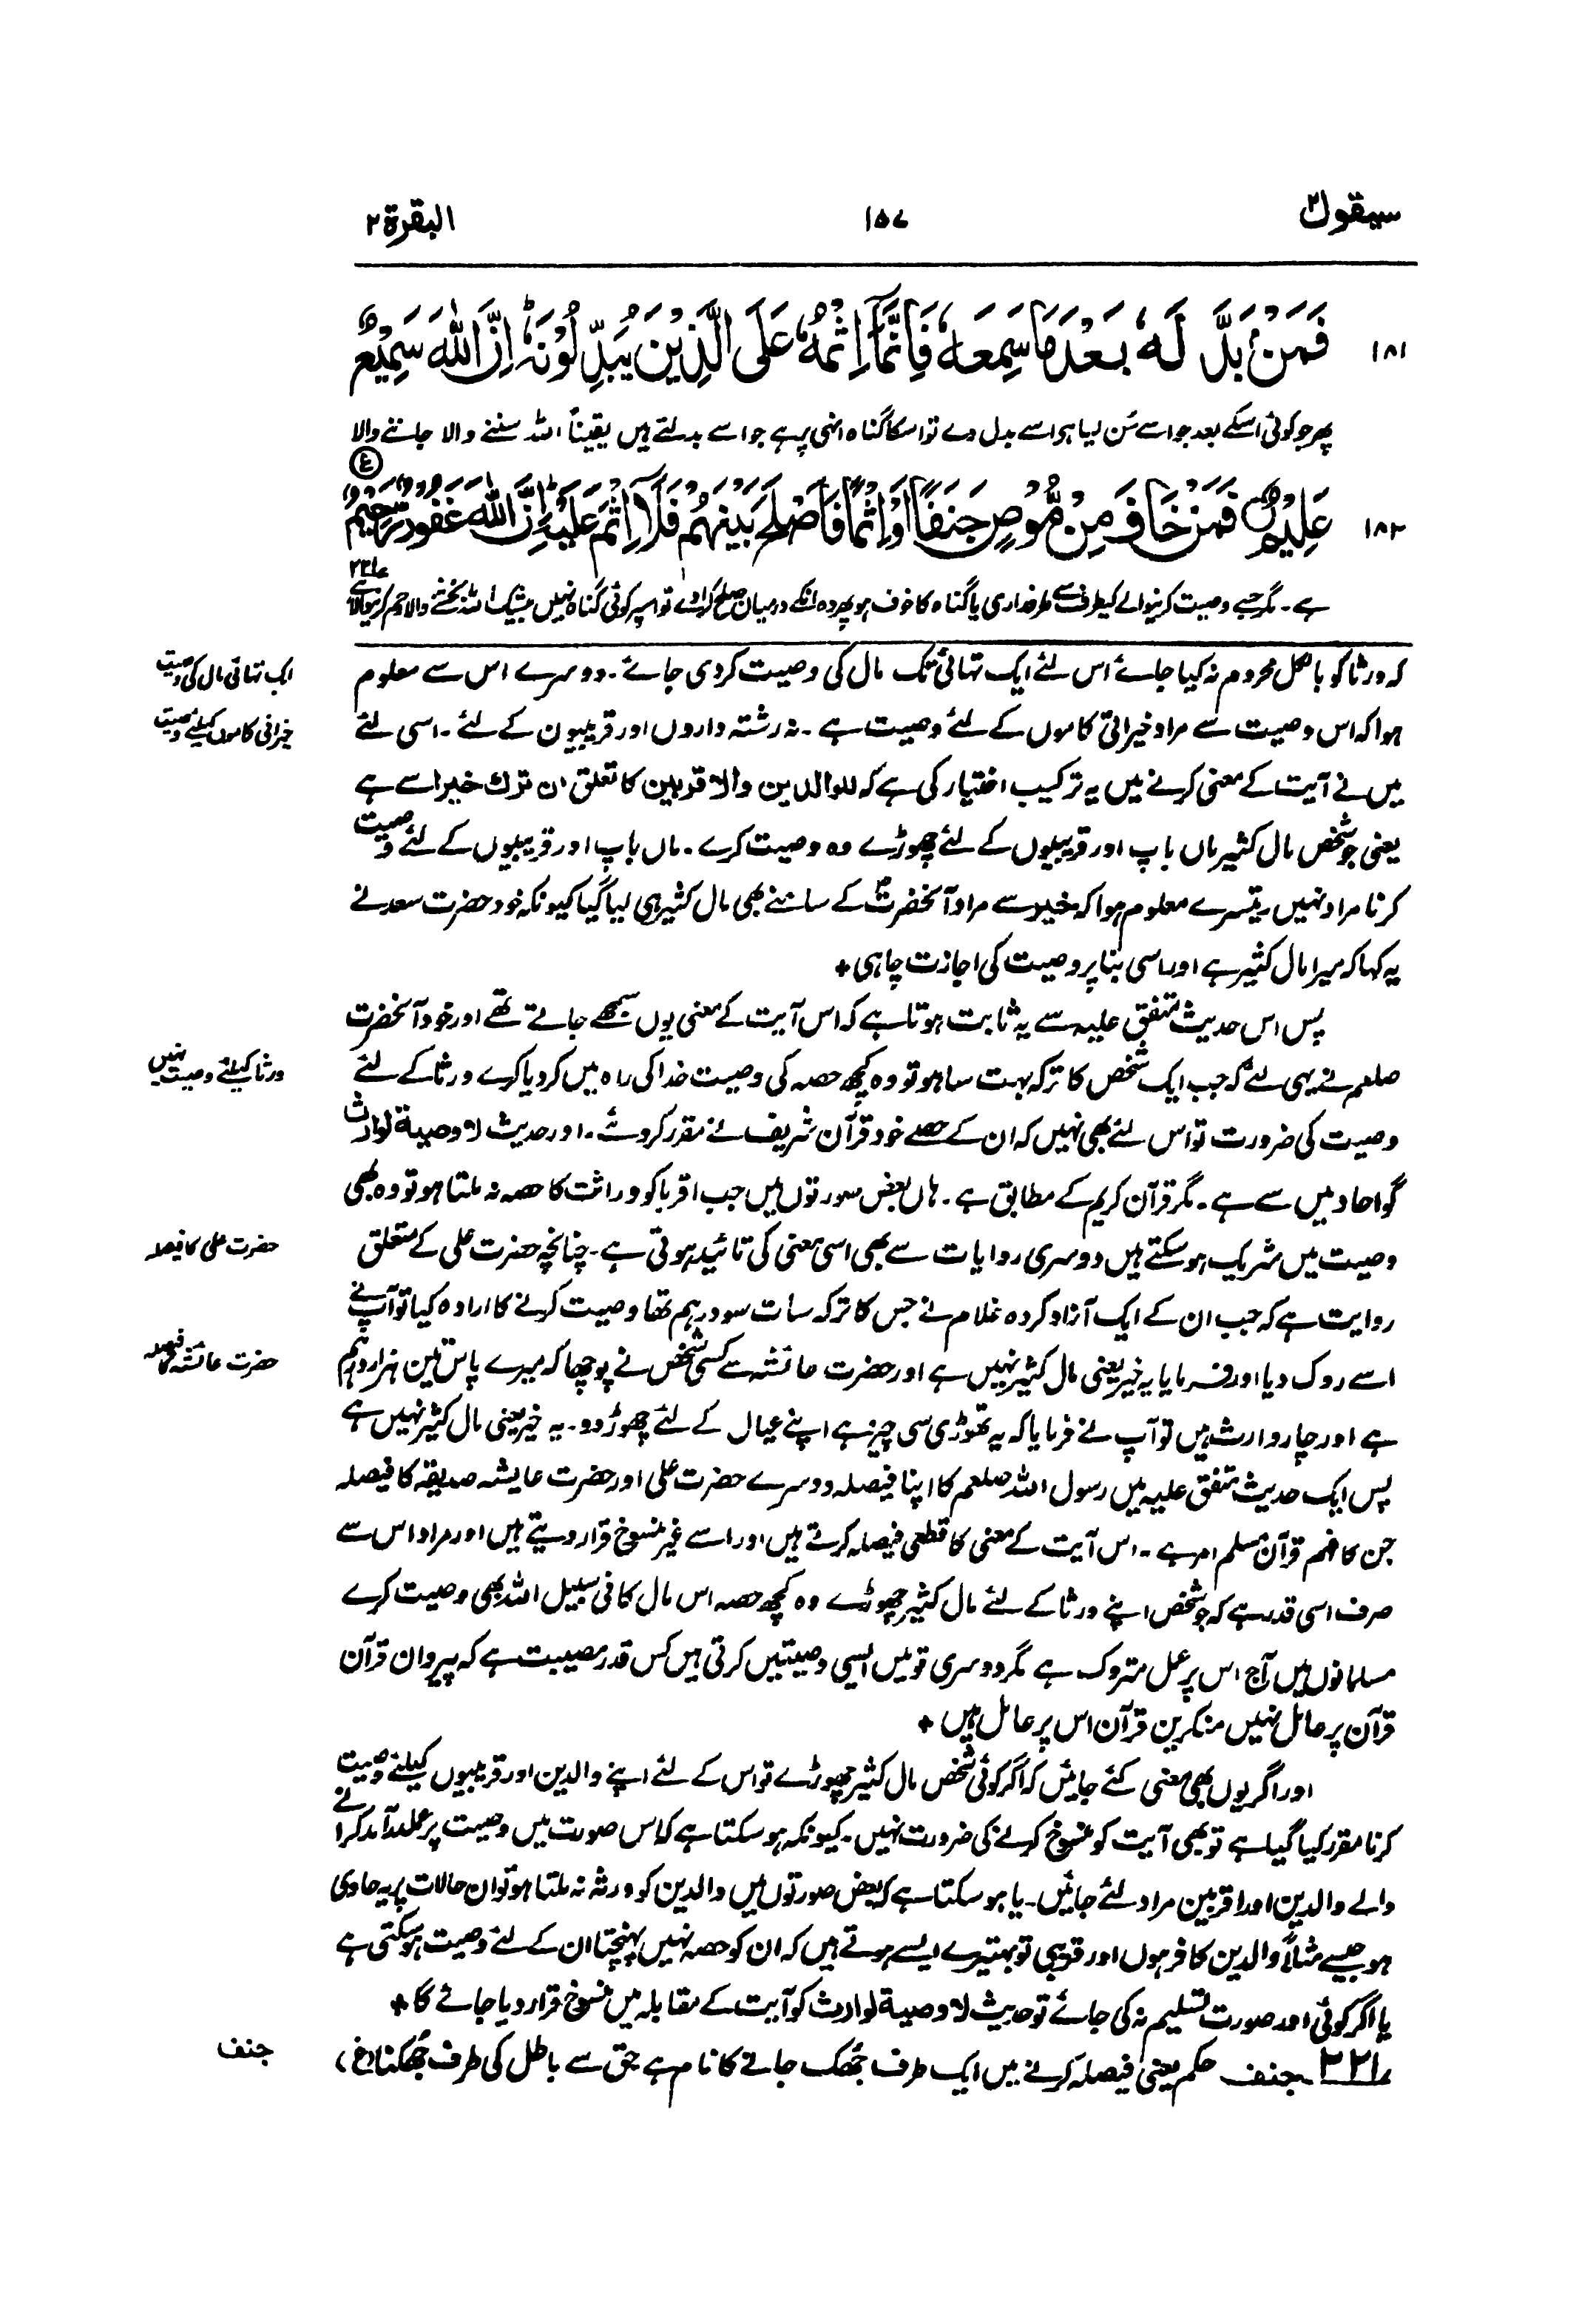 سیقول ۲
۱۵۷
البقرة ۲
۱۸۱ فَمَنْۢ بَدَّلَهٗ بَعْدَ مَا سَمِعَهٗ فَاِنَّمَاۤ اِثْمُهٗ عَلَى الَّذِیْنَ یُبَدِّلُوْنَهٗ ؕ اِنَّ اللّٰهَ سَمِیْعٌ
پھر جو کوئی اسکے بعد جو اسے سُن لیا ہو اسے بدل دے تو اسکا گناہ انہی پر ہے جو اسے بدلتے ہیں یقیناً اللہ سننے والا جاننے والا
۱۸۲ عَلِیْمٌ فَمَنْ خَافَ مِنْ مُّوْصٍ جَنَفًا اَوْ اِثْمًا فَاَصْلَحَ بَیْنَهُمْ فَلَاۤ اِثْمَ عَلَیْهِ ؕ اِنَّ اللّٰهَ غَفُوْرٌ رَّحِیْمٌ
ع
ہے۔ مگر جسے وصیت کرنیوالے کیطرف سے طرفداری یا گناہ کا خوف ہو پھر وہ انکے درمیان صلح کرا دے تو اسپر کوئی گناہ نہیں بیشک اللہ بخشنے والا رحم کرنیوالا ہے ۲۲۱
کہ ورثا کو بالکل محروم نہ کیا جائے اس لئے ایک تہائی تک مال کی وصیت کر دی جائے۔ دوسرے اس سے معلوم
ایک تہائی مال کی وصیت
ہوا کہ اس وصیت سے مراد خیراتی کاموں کے لئے وصیت ہے۔ نہ رشتہ داروں اور قریبیوں کے لئے۔ اسی لئے
خیراتی کاموں کیلئے وصیت
میں نے آیت کے معنی کرنے میں یہ ترکیب اختیار کی ہے کہ للوالدین والاقربین کا تعلق ان ترک خیرا سے ہے
یعنی جو شخص مال کثیر ماں باپ اور قریبیوں کے لئے چھوڑے وہ وصیت کرے۔ ماں باپ اور قریبیوں کے لئے وصیت
کرنا مراد نہیں۔ تیسرے معلوم ہوا کہ خیر سے مراد آنحضرتؐ کے سامنے بھی مال کثیر ہی لیا گیا کیونکہ خود حضرت سعد نے
یہ کہا کہ میرا مال کثیر ہے اور اسی بنا پر وصیت کی اجازت چاہی +
پس اس حدیث متفق علیہ سے یہ ثابت ہوتا ہے کہ اس آیت کے معنی یوں سمجھے جاتے تھے اور خود آنحضرت
صلعم نے یہی لئے کہ جب ایک شخص کا ترکہ بہت سا ہو تو وہ کچھ حصہ کی وصیت خدا کی راہ میں کر دیا کرے ورثا کے لئے
ورثا کیلئے وصیت نہیں
وصیت کی ضرورت تو اس لئے بھی نہیں کہ ان کے حصے خود قرآن شریف نے مقرر کر دئے۔ اور حدیث لا وصیة لوارث
گو احاد میں سے ہے۔ مگر قرآن کریم کے مطابق ہے۔ ہاں بعض صورتوں میں جب اقربا کو وراثت کا حصہ نہ ملتا ہو تو وہ بھی
وصیت میں شریک ہو سکتے ہیں دوسری روایات سے بھی اسی معنی کی تائید ہوتی ہے۔ چنانچہ حضرت علی کے متعلق
حضرت علی کا فیصلہ
روایت ہے کہ جب ان کے ایک آزاد کردہ غلام نے جس کا ترکہ سات سو درہم تھا وصیت کرنے کا ارادہ کیا تو آپ نے
اسے روک دیا اور فرمایا یہ خیر یعنی مال کثیر نہیں ہے اور حضرت عائشہ سے کسی شخص نے پوچھا کہ میرے پاس تین ہزار درہم
حضرت عائشہ کا فیصلہ
ہے اور چار وارث ہیں تو آپ نے فرمایا کہ یہ تھوڑی سی چیز ہے اپنے عیال کے لئے چھوڑ دو۔ یہ خیر یعنی مال کثیر نہیں ہے
پس ایک حدیث متفق علیہ میں رسول اللہ صلعم کا اپنا فیصلہ دوسرے حضرت علی اور حضرت عایشہ صدیقہ کا فیصلہ
جن کا فہم قرآن مسلم امر ہے۔ اس آیت کے معنی کا قطعی فیصلہ کرتے ہیں اور اسے غیر منسوخ قرار دیتے ہیں اور مراد اس سے
صرف اسی قدر ہے کہ جو شخص اپنے ورثا کے لئے مال کثیر چھوڑے وہ کچھ حصہ اس مال کا فی سبیل اللہ بھی وصیت کرے
مسلمانوں میں آج اس پر عمل متروک ہے مگر دوسری قومیں ایسی وصیتیں کرتی ہیں کس قدر مصیبت ہے کہ پیروان قرآن
قرآن پر عامل نہیں منکرین قرآن اس پر عامل ہیں +
اور اگر یوں بھی معنی کئے جائیں کہ اگر کوئی شخص مال کثیر چھوڑے تو اس کے لئے اپنے والدین اور قریبیوں کیلئے وصیت
کرنا مقرر کیا گیا ہے تو بھی آیت کو منسوخ کرنے کی ضرورت نہیں۔ کیونکہ ہو سکتا ہے کہ اس صورت میں وصیت پر عملدرآمد کرانے
والے والدین اور اقربین مراد لئے جائیں۔ یا ہو سکتا ہے کہ بعض صورتوں میں والدین کو ورثہ نہ ملتا ہو تو ان حالات پر یہ حاوی
ہو جیسے مثلاً والدین کافر ہوں اور قریبی تو بہتیرے ایسے ہوتے ہیں کہ ان کو حصہ نہیں پہنچتا ان کے لئے وصیت ہو سکتی ہے
یا اگر کوئی اور صورت تسلیم نہ کی جائے تو حدیث لا وصیة لوارث کو آیت کے مقابلہ میں منسوخ قرار دیا جائے گا +
۲۲۱۔ جنف حکم یعنی فیصلہ کرنے میں ایک طرف جُھک جانے کا نام ہے حق سے باطل کی طرف جُھکنا (غ)
جنف